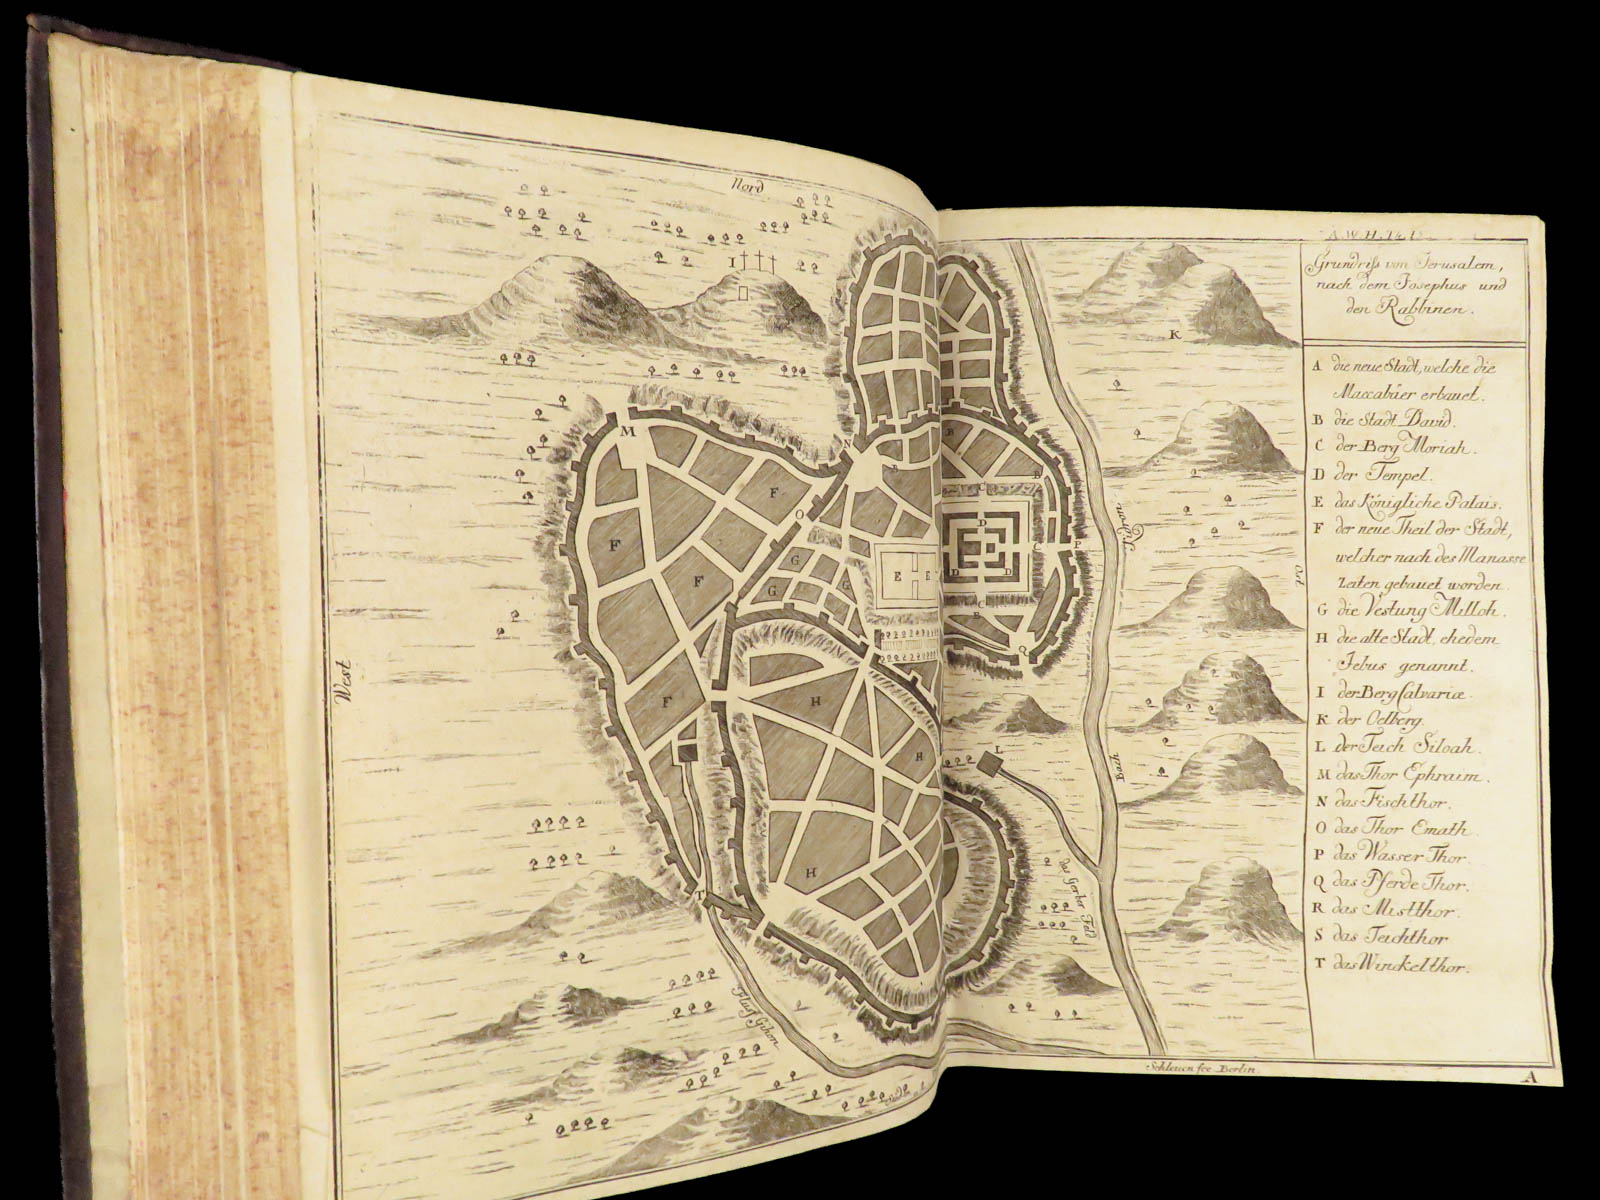 Nord
A.W.H. 14. T.
Grundriss von Jerusalem,
nach dem Josephus und
den Rabbinen.
A die neue Stadt, welche die
Maccabäer erbauet.
B die Stadt David.
C der Berg Moriah.
D der Tempel.
E das Königliche Palais.
F der neue Theil der Stadt,
welcher nach des Manasse
zeiten gebauet worden
G die Vestung Milloh.
H die alte Stadt, ehedem
Jebus genannt.
I der Berg Calvariæ
K der Oelberg.
L der Teich Siloah.
M das Thor Ephraim.
N das Fischthor.
O das Thor Emath.
P das Wasser Thor.
Q das Pferde Thor.
R das Mistthor.
S das Teichthor
T das Winckelthor.
I
K
M
N
B
F
O
C
D
P
Kidron
Ost
F
G
G
E
E
D
D
F
G
C
B
Q
West
F
H
H
L
Bach
H
T
das Gerber Feld
Fluss Gihon
Schleuen fec Berlin
A